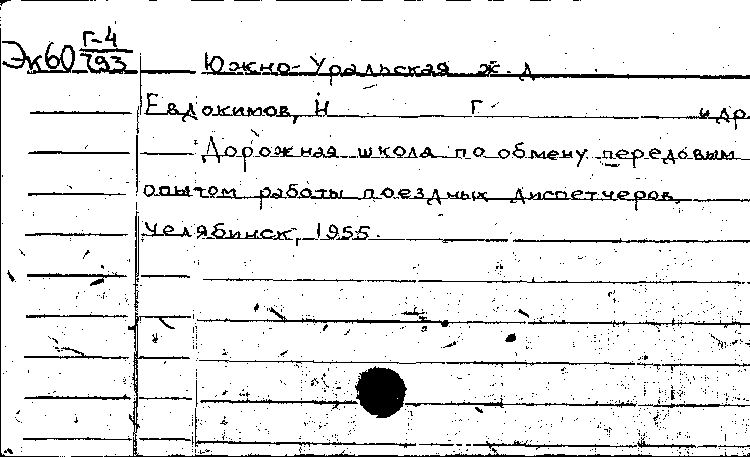 Эк60 Г-4/793
Южно-Уральская ж. д
Евдокимов, Н Г. и др
Дорожная школа по обмену передовым
опытом работы поездных диспетчеров.
Челябинск, 1955.